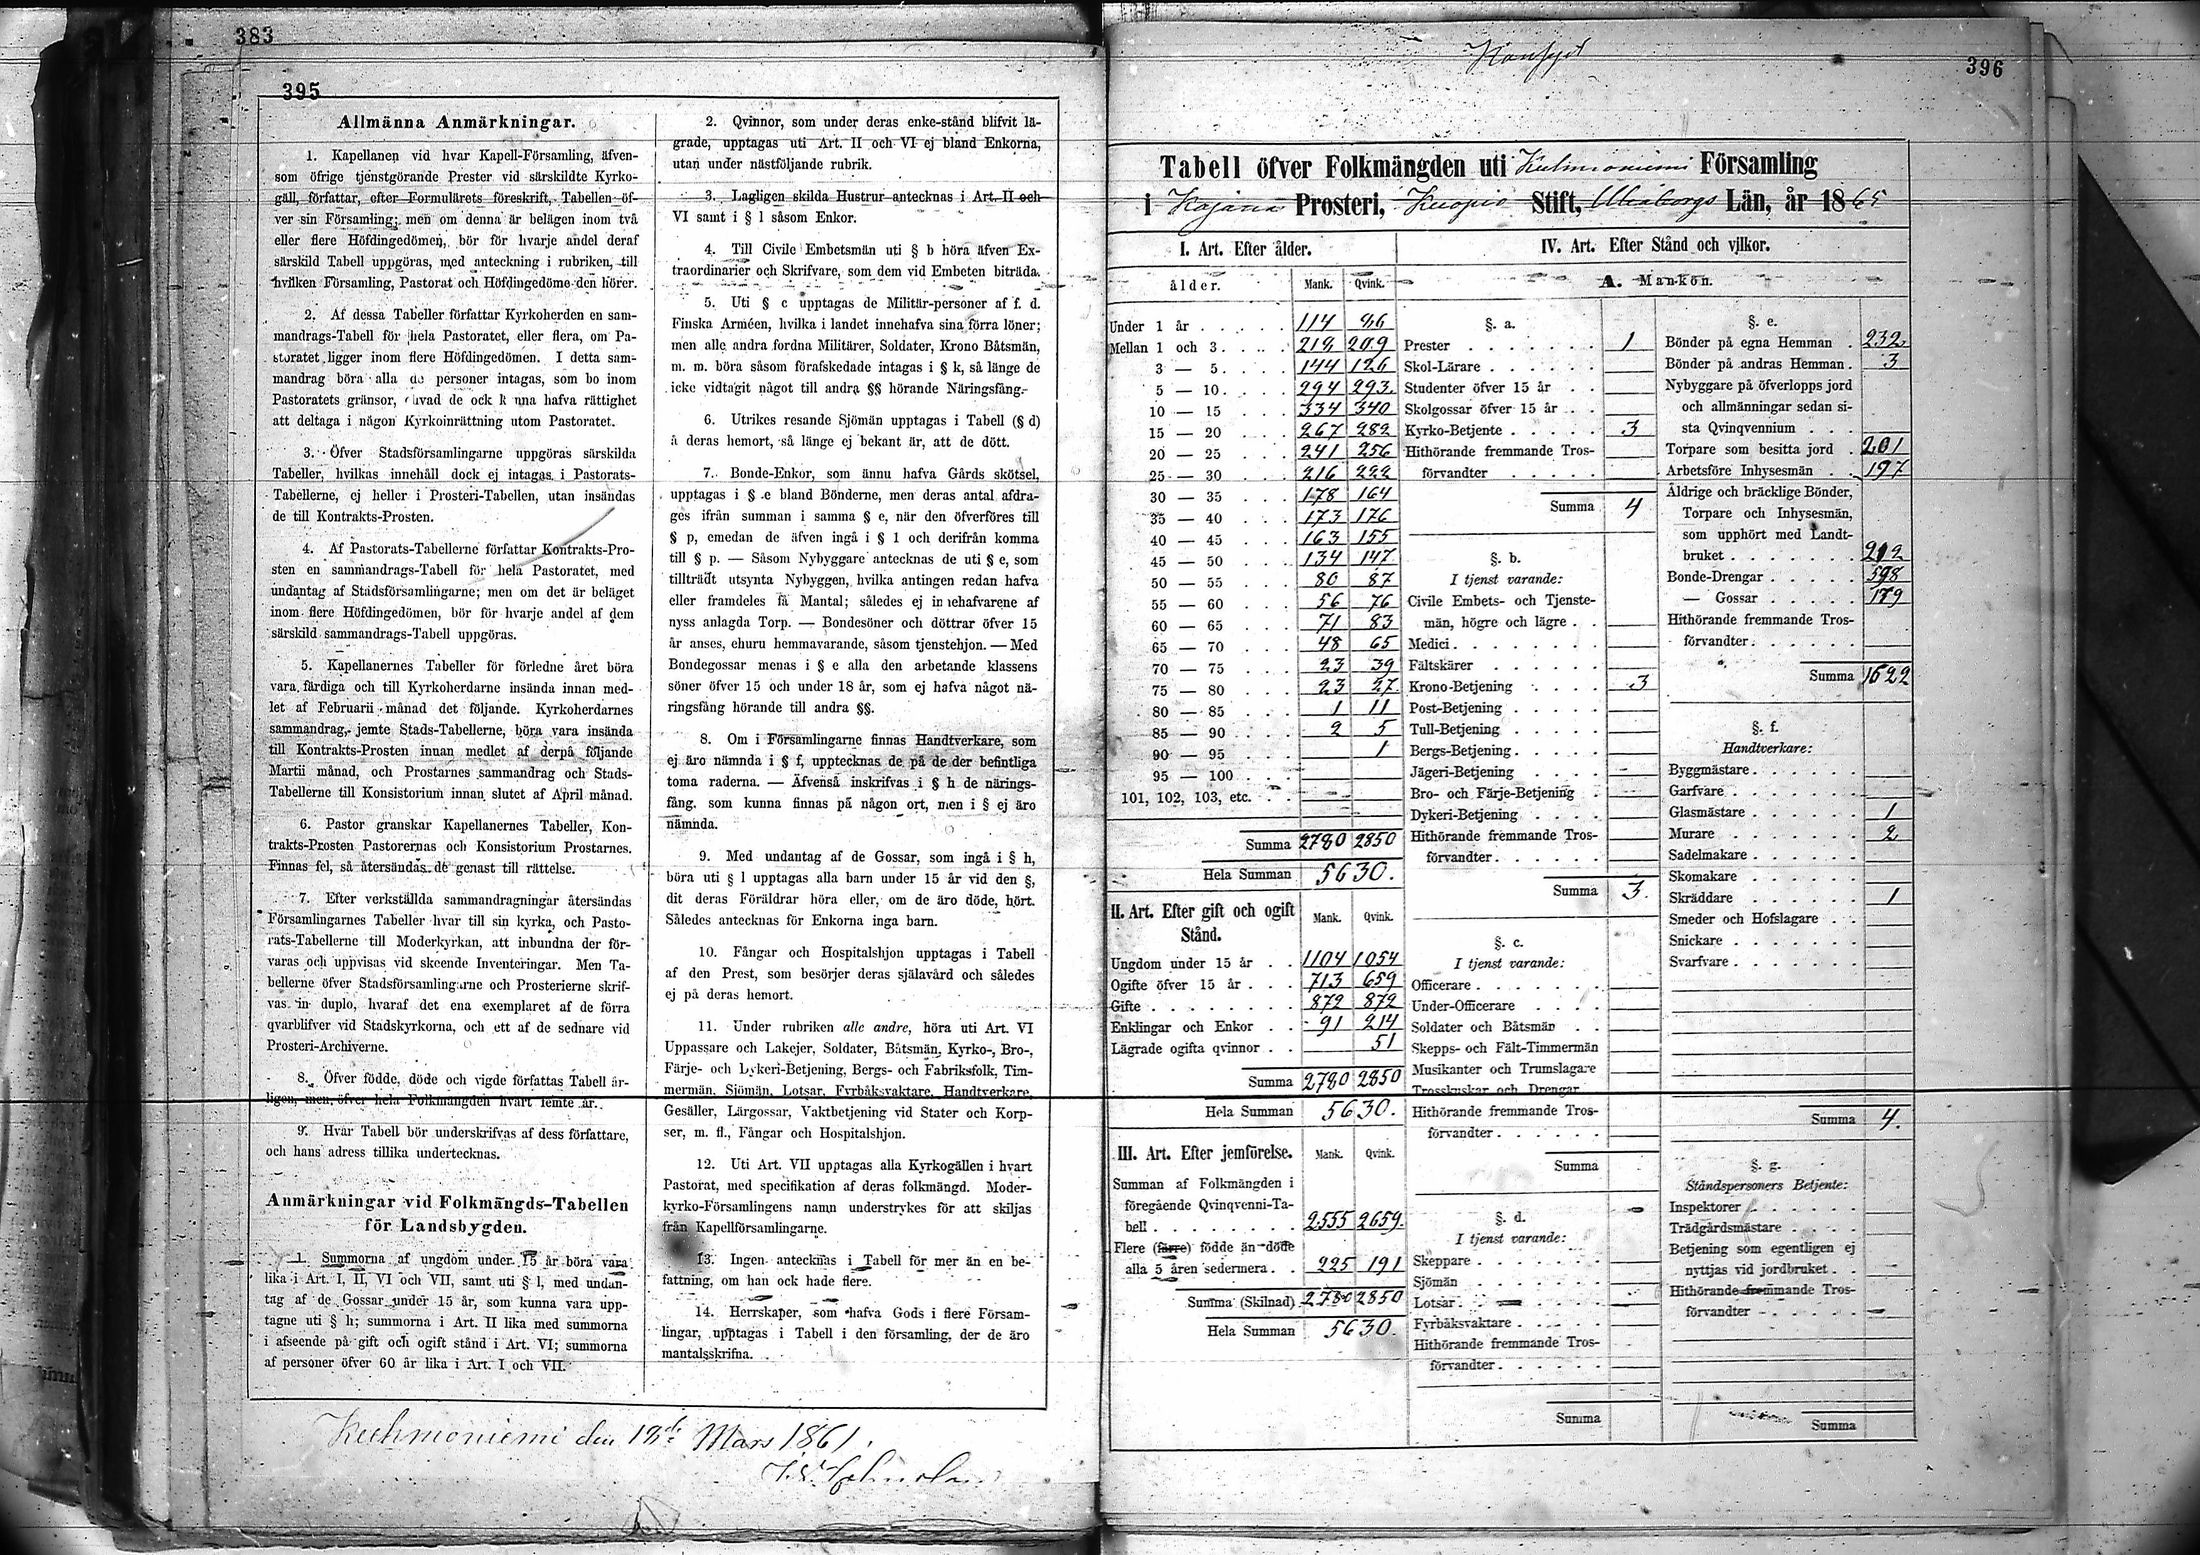 383
395
Allmänna Anmärkningar.
1. Kapellanen vid hvar Kapell-Församling, äfven-
som öfrige tjenstgörande Prester vid särskildte Kyrko-
gäll, författar, efter Formulärets föreskrift, Tabellen öf-
ver sin Församling; men om denna är belägen inom två
eller flere Höfdingedömen, bör för hvarje andel deraf
särskild Tabell uppgöras, med anteckning i rubriken, till
hvilken Församling, Pastorat och Höfdingedöme den hörer.
2. Af dessa Tabeller författar Kyrkoherden en sam-
mandrags-Tabell för hela Pastoratet, eller flera, om Pa-
storatet ligger inom flere Höfdingedömen. I detta sam-
mandrag böra alla de personer intagas, som bo inom
Pastoratets gränsor, hvad de ock kunna hafva rättighet
att deltaga i någon Kyrkoinrättning utom Pastoratet.
3. Öfver Stadsförsamlingarne uppgöras särskilda
Tabeller, hvilkas innehåll dock ej intagas i Pastorats-
Tabellerne, ej heller i Prosteri-Tabellen, utan insändas
de till Kontrakts-Prosten.
4. Af Pastorats-Tabellerne författar Kontrakts-Pro-
sten en sammandrags-Tabell för hela Pastoratet, med
undantag af Stadsförsamlingarne; men om det är beläget
inom flere Höfdingedömen, bör för hvarje andel af dem
särskild sammandrags-Tabell uppgöras.
5. Kapellanernes Tabeller för förledne året böra
vara färdiga och till Kyrkoherdarne insända innan med-
let af Februarii månad det följande. Kyrkoherdarnes
sammandrag, jemte Stads-Tabellerne, böra vara insända
till Kontrakts-Prosten innan medlet af derpå följande
Martii månad, och Prostarnes sammandrag och Stads-
Tabellerne till Konsistorium innan slutet af April månad.
6. Pastor granskar Kapellanernes Tabeller, Kon-
trakts-Prosten Pastorernas och Konsistorium Prostarnes.
Finnas fel, så återsändas de genast till rättelse.
7. Efter verkställda sammandragningar återsändas
Församlingarnes Tabeller hvar till sin kyrka, och Pasto-
rats-Tabellerne till Moderkyrkan, att inbundna der för-
varas och uppvisas vid skeende Inventeringar. Men Ta-
bellerne öfver Stadsförsamlingarne och Prosterierne skrif-
vas in duplo, hvaraf det ena exemplaret af de förra
qvarblifver vid Stadskyrkorna, och ett af de sednare vid
Prosteri-Archiverne.
8. Öfver födde, döde och vigde författas Tabell år-
ligen, men öfver hela Folkmängden hvart femte år.
9. Hvar Tabell bör underskrifvas af dess författare,
och hans adress tillika undertecknas.
Anmärkningar vid Folkmängds-Tabellen
för Landsbygden.
1. Summorna af ungdom under 15 år böra vara
lika i Art. I, II, VI och VII, samt uti § l, med undan-
tag af de Gossar under 15 år, som kunna vara upp-
tagne uti § h; summorna i Art. II lika med summorna
i afseende på gift och ogift stånd i Art. VI; summorna
af personer öfver 60 år lika i Art. I och VII.
2. Qvinnor, som under deras enke-stånd blifvit lä-
grade, upptagas uti Art. II och VI ej bland Enkorna,
utan under nästföljande rubrik.
3. Lagligen skilda Hustrur antecknas i Art. II och
VI samt i § l såsom Enkor.
4. Till Civile Embetsmän uti § b höra äfven Ex-
traordinarier och Skrifvare, som dem vid Embeten biträda.
5. Uti § c upptagas de Militär-personer af f. d.
Finska Arméen, hvilka i landet innehafva sina förra löner;
men alle andra fordna Militärer, Soldater, Krono Båtsmän,
m. m. böra såsom förafskedade intagas i § k, så länge de
icke vidtagit något till andra §§ hörande Näringsfång.
6. Utrikes resande Sjömän upptagas i Tabell (§ d)
å deras hemort, så länge ej bekant är, att de dött.
7. Bonde-Enkor, som ännu hafva Gårds skötsel,
upptagas i § e bland Bönderne, men deras antal afdra-
ges ifrån summan i samma § e, när den öfverföres till
§ p, emedan de äfven ingå i § l och derifrån komma
till § p. — Såsom Nybyggare antecknas de uti § e, som
tillträdt utsynta Nybyggen, hvilka antingen redan hafva
eller framdeles få Mantal; således ej innehafvarene af
nyss anlagda Torp. — Bondesöner och döttrar öfver 15
år anses, ehuru hemmavarande, såsom tjenstehjon. — Med
Bondegossar menas i § e alla den arbetande klassens
söner öfver 15 och under 18 år, som ej hafva något nä-
ringsfång hörande till andra §§.
8. Om i Församlingarne finnas Handtverkare, som
ej äro nämnda i § f, upptecknas de på de der befintliga
toma raderna. — Äfvenså inskrifvas i § h de närings-
fång, som kunna finnas på någon ort, men i § ej äro
nämnda.
9. Med undantag af de Gossar, som ingå i § h,
böra uti § l upptagas alla barn under 15 år vid den §,
dit deras Föräldrar höra eller, om de äro döde, hört.
Således antecknas för Enkorna inga barn.
10. Fångar och Hospitalshjon upptagas i Tabell
af den Prest, som besörjer deras själavård och således
ej på deras hemort.
11. Under rubriken alle andre, höra uti Art. VI
Uppassare och Lakejer, Soldater, Båtsmän, Kyrko-, Bro-,
Färje- och Dykeri-Betjening, Bergs- och Fabriksfolk, Tim-
mermän, Sjömän, Lotsar, Fyrbåksvaktare, Handtverkare,
Gesäller, Lärgossar, Vaktbetjening vid Stater och Korp-
ser, m. fl., Fångar och Hospitalshjon.
12. Uti Art. VII upptagas alla Kyrkogällen i hvart
Pastorat, med specifikation af deras folkmängd. Moder-
kyrko-Församlingens namn understrykes för att skiljas
från Kapellförsamlingarne.
13. Ingen antecknas i Tabell för mer än en be-
fattning, om han ock hade flere.
14. Herrskaper, som hafva Gods i flere Försam-
lingar, upptagas i Tabell i den församling, der de äro
mantalsskrifna.
den 12 Mars 1861.
396
Tabell öfver Folkmängden uti Kuhmoniemi Församling
i Kajana Prosteri, Kuopio Stift, Uleåborgs Län, år 1865
I. Art. Efter ålder.
ålder. Mank. Qvink.
Under 1 år 114 86
Mellan 1 och 3 218 209
3 — 5 144 126
5 — 10 294 293
10 — 15 334 340
15 — 20 267 282
20 — 25 241 256
25 — 30 216 222
30 — 35 178 164
35 — 40 173 176
40 — 45 163 155
45 — 50 134 147
50 — 55 80 87
55 — 60 56 76
60 — 65 71 83
65 — 70 48 65
70 — 75 23 39
75 — 80 23 27
80 — 85 1 11
85 — 90 2 5
90 — 95 1
95 — 100
101, 102, 103, etc.
Summa 2780 2850
Hela Summan 5630.
II. Art. Efter gift och ogift
Stånd. Mank. Qvink.
Ungdom under 15 år 1104 1054
Ogifte öfver 15 år 713 659
Gifte 872 872
Enklingar och Enkor 91 214
Lägrade ogifta qvinnor 51
Summa 2780 2850
Hela Summan 5630.
III. Art. Efter jemförelse. Mank. Qvink.
Summan af Folkmängden i
föregående Qvinqvenni-Ta-
bell 2555 2659.
Flere (färre) födde än döde
alla 5 åren sedermera 225 191
Summa (Skilnad) 2780 2850
Hela Summan 5630.
IV. Art. Efter Stånd och vilkor.
A. Mankön.
§. a.
Prester 1
Skol-Lärare
Studenter öfver 15 år
Skolgossar öfver 15 år
Kyrko-Betjente 3
Hithörande fremmande Tros-
förvandter
Summa 4
§. b.
I tjenst varande:
Civile Embets- och Tjenste-
män, högre och lägre
Medici
Fältskärer
Krono-Betjening 3
Post-Betjening
Tull-Betjening
Bergs-Betjening
Jägeri-Betjening
Bro- och Färje-Betjening
Dykeri-Betjening
Hithörande fremmande Tros-
förvandter
Summa 3.
§. c.
I tjenst varande:
Officerare
Under-Officerare
Soldater och Båtsmän
Skepps- och Fält-Timmermän
Musikanter och Trumslagare
Trosskuskar och Drengar
Hithörande fremmande Tros-
förvandter
Summa
§. d.
I tjenst varande:
Skeppare
Sjömän
Lotsar
Fyrbåksvaktare
Hithörande fremmande Tros-
förvandter
Summa
§. e.
Bönder på egna Hemman 232
Bönder på andras Hemman 3
Nybyggare på öfverlopps jord
och allmänningar sedan si-
sta Qvinqvennium
Torpare som besitta jord 201
Arbetsföre Inhysesmän 197
Åldrige och bräcklige Bönder,
Torpare och Inhysesmän,
som upphört med Landt-
bruket 212
Bonde-Drengar 598
— Gossar 179
Hithörande fremmande Tros-
förvandter
Summa 1622
§. f.
Handtverkare:
Byggmästare
Garfvare
Glasmästare 1
Murare 2
Sadelmakare
Skomakare
Skräddare 1
Smeder och Hofslagare
Snickare
Svarfvare
Summa 4.
§. g.
Ståndspersoners Betjente:
Inspektorer
Trädgårdsmästare
Betjening som egentligen ej
nyttjas vid jordbruket
Hithörande fremmande Tros-
förvandter
Summa